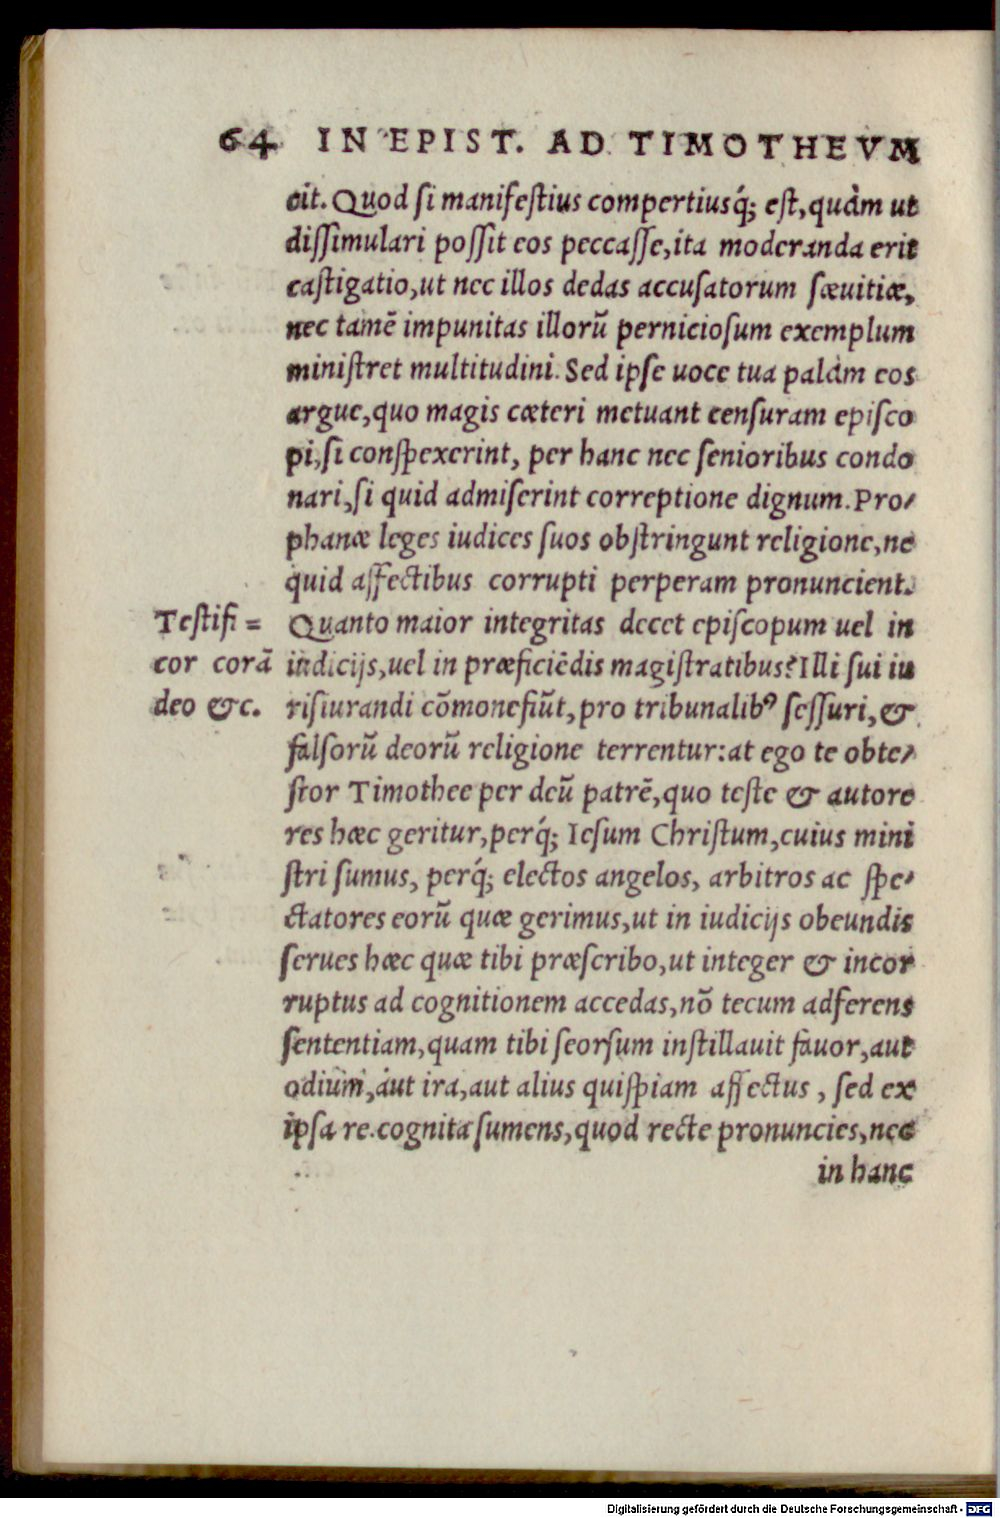 64 IN EPIST. AD TIMOTHEVM
cit. Quod si manifestius compertiusq́; est, quàm ut
dissimulari possit eos peccasse, ita moderanda erit
castigatio, ut nec illos dedas accusatorum sæuitiæ,
nec tamē impunitas illorū perniciosum exemplum
ministret multitudini. Sed ipse uoce tua palàm eos
argue, quo magis cæteri metuant censuram episco
pi, si conspexerint, per hanc nec senioribus condo
nari, si quid admiserint correptione dignum. Pro-
phanæ leges iudices suos obstringunt religione, ne
quid affectibus corrupti perperam pronuncient.
Testifi=
cor corā
deo &c.
Quanto maior integritas decet episcopum uel in
iudicijs, uel in præficiēdis magistratibus? Illi sui iu
risiurandi cōmonefiūt, pro tribunalibꝰ sessuri, &
falsorū deorū religione terrentur: at ego te obte-
stor Timothee per deū patrē, quo teste & autore
res hæc geritur, perq́; Iesum Christum, cuius mini
stri sumus, perq́; electos angelos, arbitros ac spe-
ctatores eorū quæ gerimus, ut in iudicijs obeundis
serues hæc quæ tibi præscribo, ut integer & incor
ruptus ad cognitionem accedas, nō tecum adferens
sententiam, quam tibi seorsum instillauit fauor, aut
odium, aut ira, aut alius quispiam affectus, sed ex
ipsa re cognita sumens, quod recte pronuncies, nec
in hanc
Digitalisierung gefördert durch die Deutsche Forschungsgemeinschaft - DFG